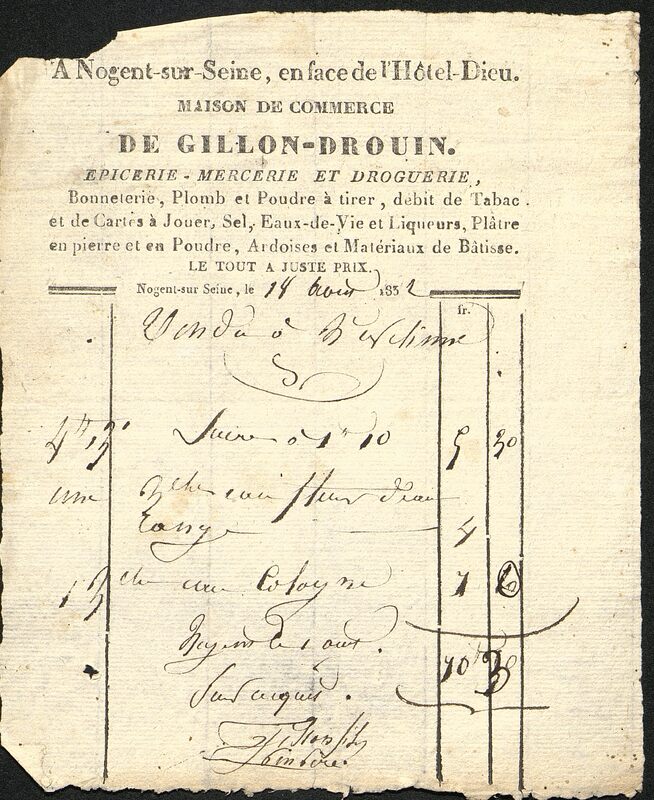 A Nogent-sur-Seine, en face de l'Hôtel-Dieu.
MAISON DE COMMERCE
DE GILLON-DROUIN.
EPICERIE - MERCERIE ET DROGUERIE,
Bonneterie, Plomb et Poudre à tirer, débit de Tabac
et de Cartes à Jouer, Sel, Eaux-de-Vie et Liqueurs, Plâtre
en pierre et en Poudre, Ardoises et Matériaux de Bâtisse.
LE TOUT A JUSTE PRIX.
Nogent-sur Seine, le 14 1832
fr.
Vendu à
Sucre à 1 10 5 30
une eau fleur d'eau
4
eau Cologne 1
10 30